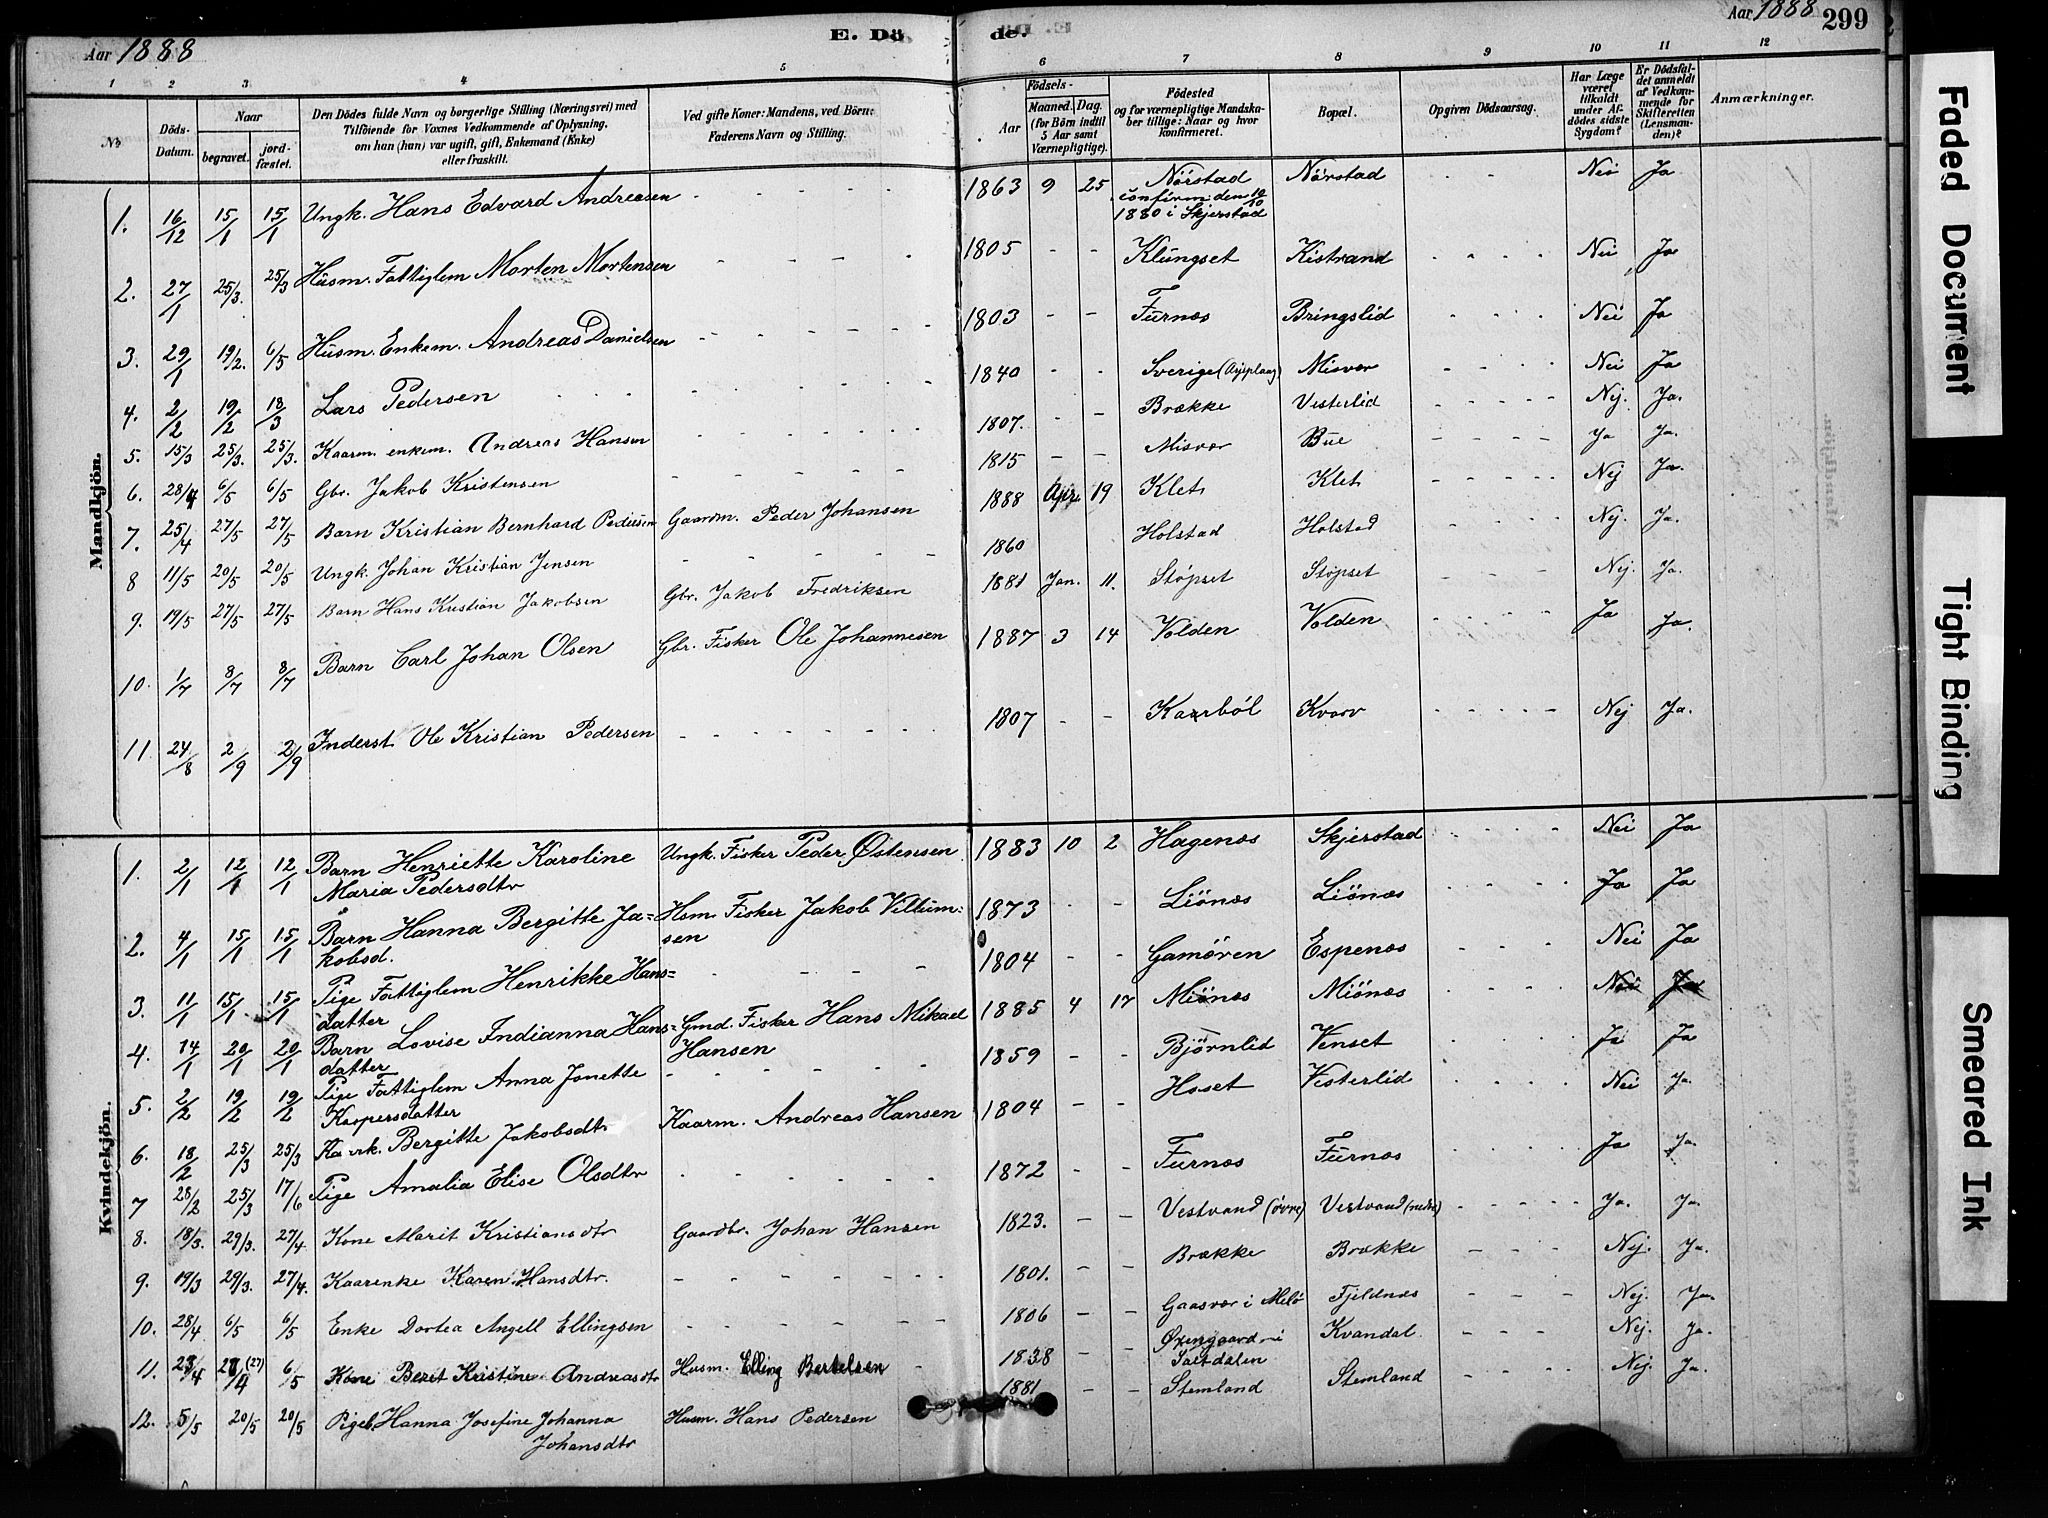 Aar 1888
E. Dö
de.
Aar 1888
299
1 2 3 4 5 6 7 8 9 10 11 12
No
Döds-Datum.
Naar
begravet.
jord-fæstet.
Den Dödes fulde Navn og borgerlige Stilling (Næringsvei) med
Tilföiende for Voxnes Vedkommende af Oplysning,
om han (hun) var ugift, gift, Enkemand (Enke)
eller fraskilt.
Ved gifte Koner: Mandens, ved Börn:
Faderens Navn og Stilling.
Födsels-
Aar
Maaned. Dag.
(for Börn indtil
5 Aar samt
Værnepligtige).
Födested
og for værnepligtige Mandska-
ber tillige: Naar og hvor
konfirmeret.
Bopæl.
Opgiven Dödsaarsag.
Har Læge
været
tilkaldt
under Af-
dödes sidste
Sygdom?
Er Dödsfal-
det anmeldt
af Vedkom-
mende for
Skifteretten
(Lensman-
den)?
Anmærkninger.
Mandkjön.
1. 16/12 15/1 15/1 Ungk. Hans Edvard Andreasen - - - - 1863 9 25 Nörstad Nörstad - - Nei Ja
confirm den 10/10
1880 i Skjerstad
2. 27/1 25/3. 25/3 Husm. Fattiglem Morten Mortensen - - - - 1805 - - Klungset Kistrand - - - - Nei Ja
3. 29/1 19/2. 6/5 Husm. Enkem. Andreas Danielsen - - - - 1803 - - Furnæs Bringslid - - - - Nei Ja
4. 2/2 19/2 18/3 Lars Pedersen - - - - 1840 - - Sverige (Arjeplaug) Misvær - - - - Nei Ja
5. 15/3 25/3. 25/3. Kaarm. enkem. Andreas Hansen - - - - 1807. - - Brække Vesterlid - - - - Nej. Ja.
6. 28/4 6/5 6/5 Gbr. Jakob Kristensen - - - - 1815 - - Misvær Bue - - - - Ja Ja.
7. 25/4 27/5 27/5 Barn Kristian Bernhard Pedersen Gaardm. Peder Johansen 1888 Apr. 19 Klet Klet - - - - Nej Ja.
8 11/5 20/5 20/5 Ungk. Johan Kristian Jensen - - - - 1860 Holstad Holstad - - - - Nej. Ja.
9. 19/5 27/5 27/5 Barn Hans Kristian Jakobsen Gbr. Jakob Fredriksen 1881 Jan. 11. Støpset Støpset - - - Nej. Ja.
10. 1/7 8/7 8/7 Barn Carl Johan Olsen Gbr. Fisker Ole Johannesen 1887 3 14 Volden Volden - - - - Ja Ja.
11 24/8 2/9 2/9 Inderst Ole Kristian Pedersen - - - - 1807 - - Kaarböl Kvarv - - - - Nej Ja.
Kvindekjön.
1. 2/1 12/1 12/1 Barn Henriette Karoline Ungk. Fisker Peder Østensen 1883 10 2 Hagenæs Skjerstad - - - - Nei Ja
Maria Pedersdtr
2. 4/1 15/1 15/1 Barn Hanna Bergitte Ja- Hsm. Fisker Jakob Villum- 1873 - - Liönæs Liönæs - - - - Ja Ja
kobsd. sen
3. 11/1 15/1 15/1 Pige Fattiglem Henrikke Hans= - - - - 1804 - - Gamören Espenæs - - - - Nei Ja
datter
4. 14/1 20/1 20/1 Barn Lovise Indianna Hans= Gmd. Fisker Hans Mikael 1885 4 17 Miönæs Miönæs - - - - Nei Ja
datter Hansen
5. 2/2 19/2 19/2 Pige Fattiglem Anna Jonette - - - - 1859 - - Björnlid Venset - - - - Ja Ja
Kaspersdatter
6. 18/2 25/3 25/3 Bergitte Jakobsdtr Kaarm. Andreas Hansen 1804 - - Hoset Vesterlid - - - - Nei Ja.
7 28/2 25/3 17/6 Pige Amalia Elise Olsdtr - - - - 1872 - - Furnæs Furnæs - - - - Ja Ja.
8. 18/3. 29/3. 27/4 Kone Marit Kristiansdtr Gaardbr. Johan Hansen 1823. - - Vestvand (övre) Vestvand (nedre) - - - - Ja. Ja.
9. 19/3 29/3. 27/4. Kaarenke Karen Hansdtr. - - - - 1801. - - Brække Brække - - - Nej. Ja.
10. 28/4 6/5 6/5 Enke Dortea Angell Ellingsen - - - - 1806 - - Gaasvær i Melö Fjeldnæs - - - Nej. Ja.
11. 23/4 28/4 (27) 6/5 Kone Beret Kristine Andreasdtr Husm. Elling Bertelsen 1838 - - Øxengaard i Kvandal - - - Nej. Ja.
Saltdalen
12. 5/5 20/5 20/5 Pigeb. Hanna Josefine Johanna Husm. Hans Pedersen 1881 - - Stemland Stemland - - - Nej. Ja.
Johansdtr
Faded Document
Tight Binding
Smeared Ink